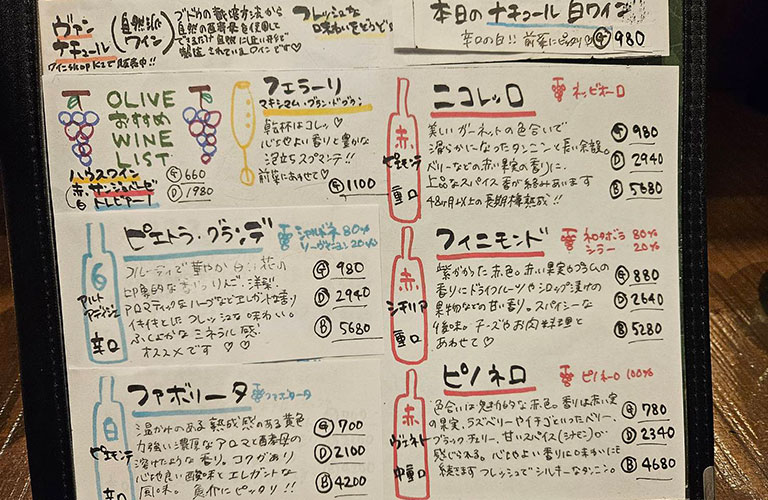 ヴァン
ナチュール
(自然派
ワイン)
ワインshop K2で販売中!!
ブドウの栽培方法から
自然の酵母を使用して
できるだけ自然に近い形で
製造されているワインです♡
フレッシュな
味わいをどうぞ
本日のナチュール 白ワイン
辛口の白!! 前菜にピッタリ♡ G 980
OLIVE
おすすめ
WINE
LIST
ハウスワイン G 660
赤 サンジョベーゼ
白 トレビアーノ D 1980
フェラーリ
マキシマム・ブラン・ド・ブラン
乾杯はコレッ♡
心地よい香りと豊かな
泡立ちスプマンテ!!
前菜にあわせて♡
G 1100
赤
ピエモンテ
重口
ニコレッロ ネッビオーロ
美しいガーネットの色合いで
滑らかになったタンニンと長い余韻。
ベリーなどの赤い果実の香りに、
上品なスパイス香が絡みあいます
48ヶ月以上の長期樽熟成!!
G 980
D 2940
B 5680
白
アルト
アディジェ
辛口
ピエトラ・グランデ シャルドネ 80%
ソーヴィニヨン 20%
フルーティで華やか 白い花の
印象的な香り りんご、洋梨、
アロマティックなハーブなどエレガントな香り
イキイキとしたフレッシュな味わい。
ふくよかなミネラル感
オススメです ♡♡
G 980
D 2940
B 5680
赤
シチリア
重口
フィニモンド ネロダボラ 80%
シラー 20%
紫がかった赤色。赤い果実やプラムの
香りにドライフルーツやシロップ漬けの
果物などの甘い香り。スパイシーな
後味。チーズやお肉料理と
あわせて♡
G 880
D 2640
B 5280
白
ピエモンテ
辛口
ファボリータ ファボリータ
温かみのある熟成感のある黄色
力強い濃厚なアロマと酵母の
溶けたような香り。コクがあり
心地良い酸味とエレガントな
風味。魚介にピッタリ!!
G 700
D 2100
B 4200
赤
ヴェネト
中重口
ピノネロ ピノネーロ 100%
色合いは魅力的な赤色。香りは赤い実
の果実、ラズベリーやイチゴといったベリー、
ブラックチェリー、甘いスパイス(シナモン)が
感じられる。心地よい香りに味わいに
続きます フレッシュでシルキーなタンニン。
G 780
D 2340
B 4680